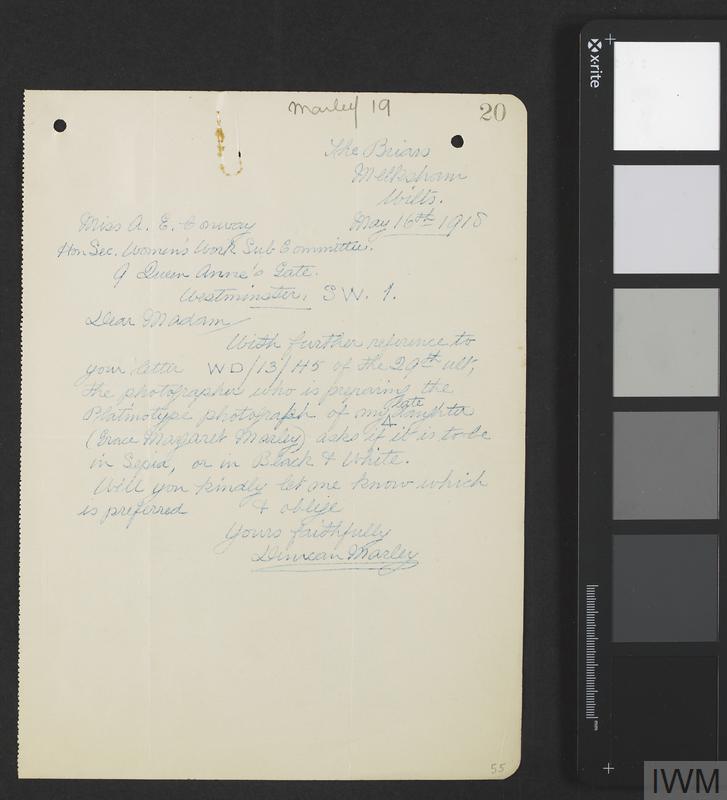 Marley 19
20
The Briars
Melksham
Wilts.
May 16th 1918
Miss A. E. Conway
Hon Sec. Women's Work Sub Committee.
9 Queen Anne's Gate.
Westminster, S W. 1.
Dear Madam
With further reference to
your letter WD/13/145 of the 29th ult,
the photographer who is preparing the
Platinotype photograph of my late daughter
(Grace Magaret Marley) asks if it is to be
in Sepia, or in Black & White.
Will you kindly let me know which
is preferred & oblige
Yours faithfully
Duncan Marley
55
x-rite
mm
IWM